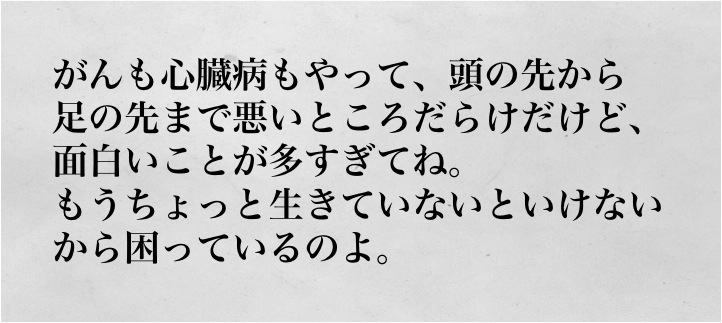 がんも心臓病もやって、頭の先から
足の先まで悪いところだらけだけど、
面白いことが多すぎてね。
もうちょっと生きていないといけない
から困っているのよ。